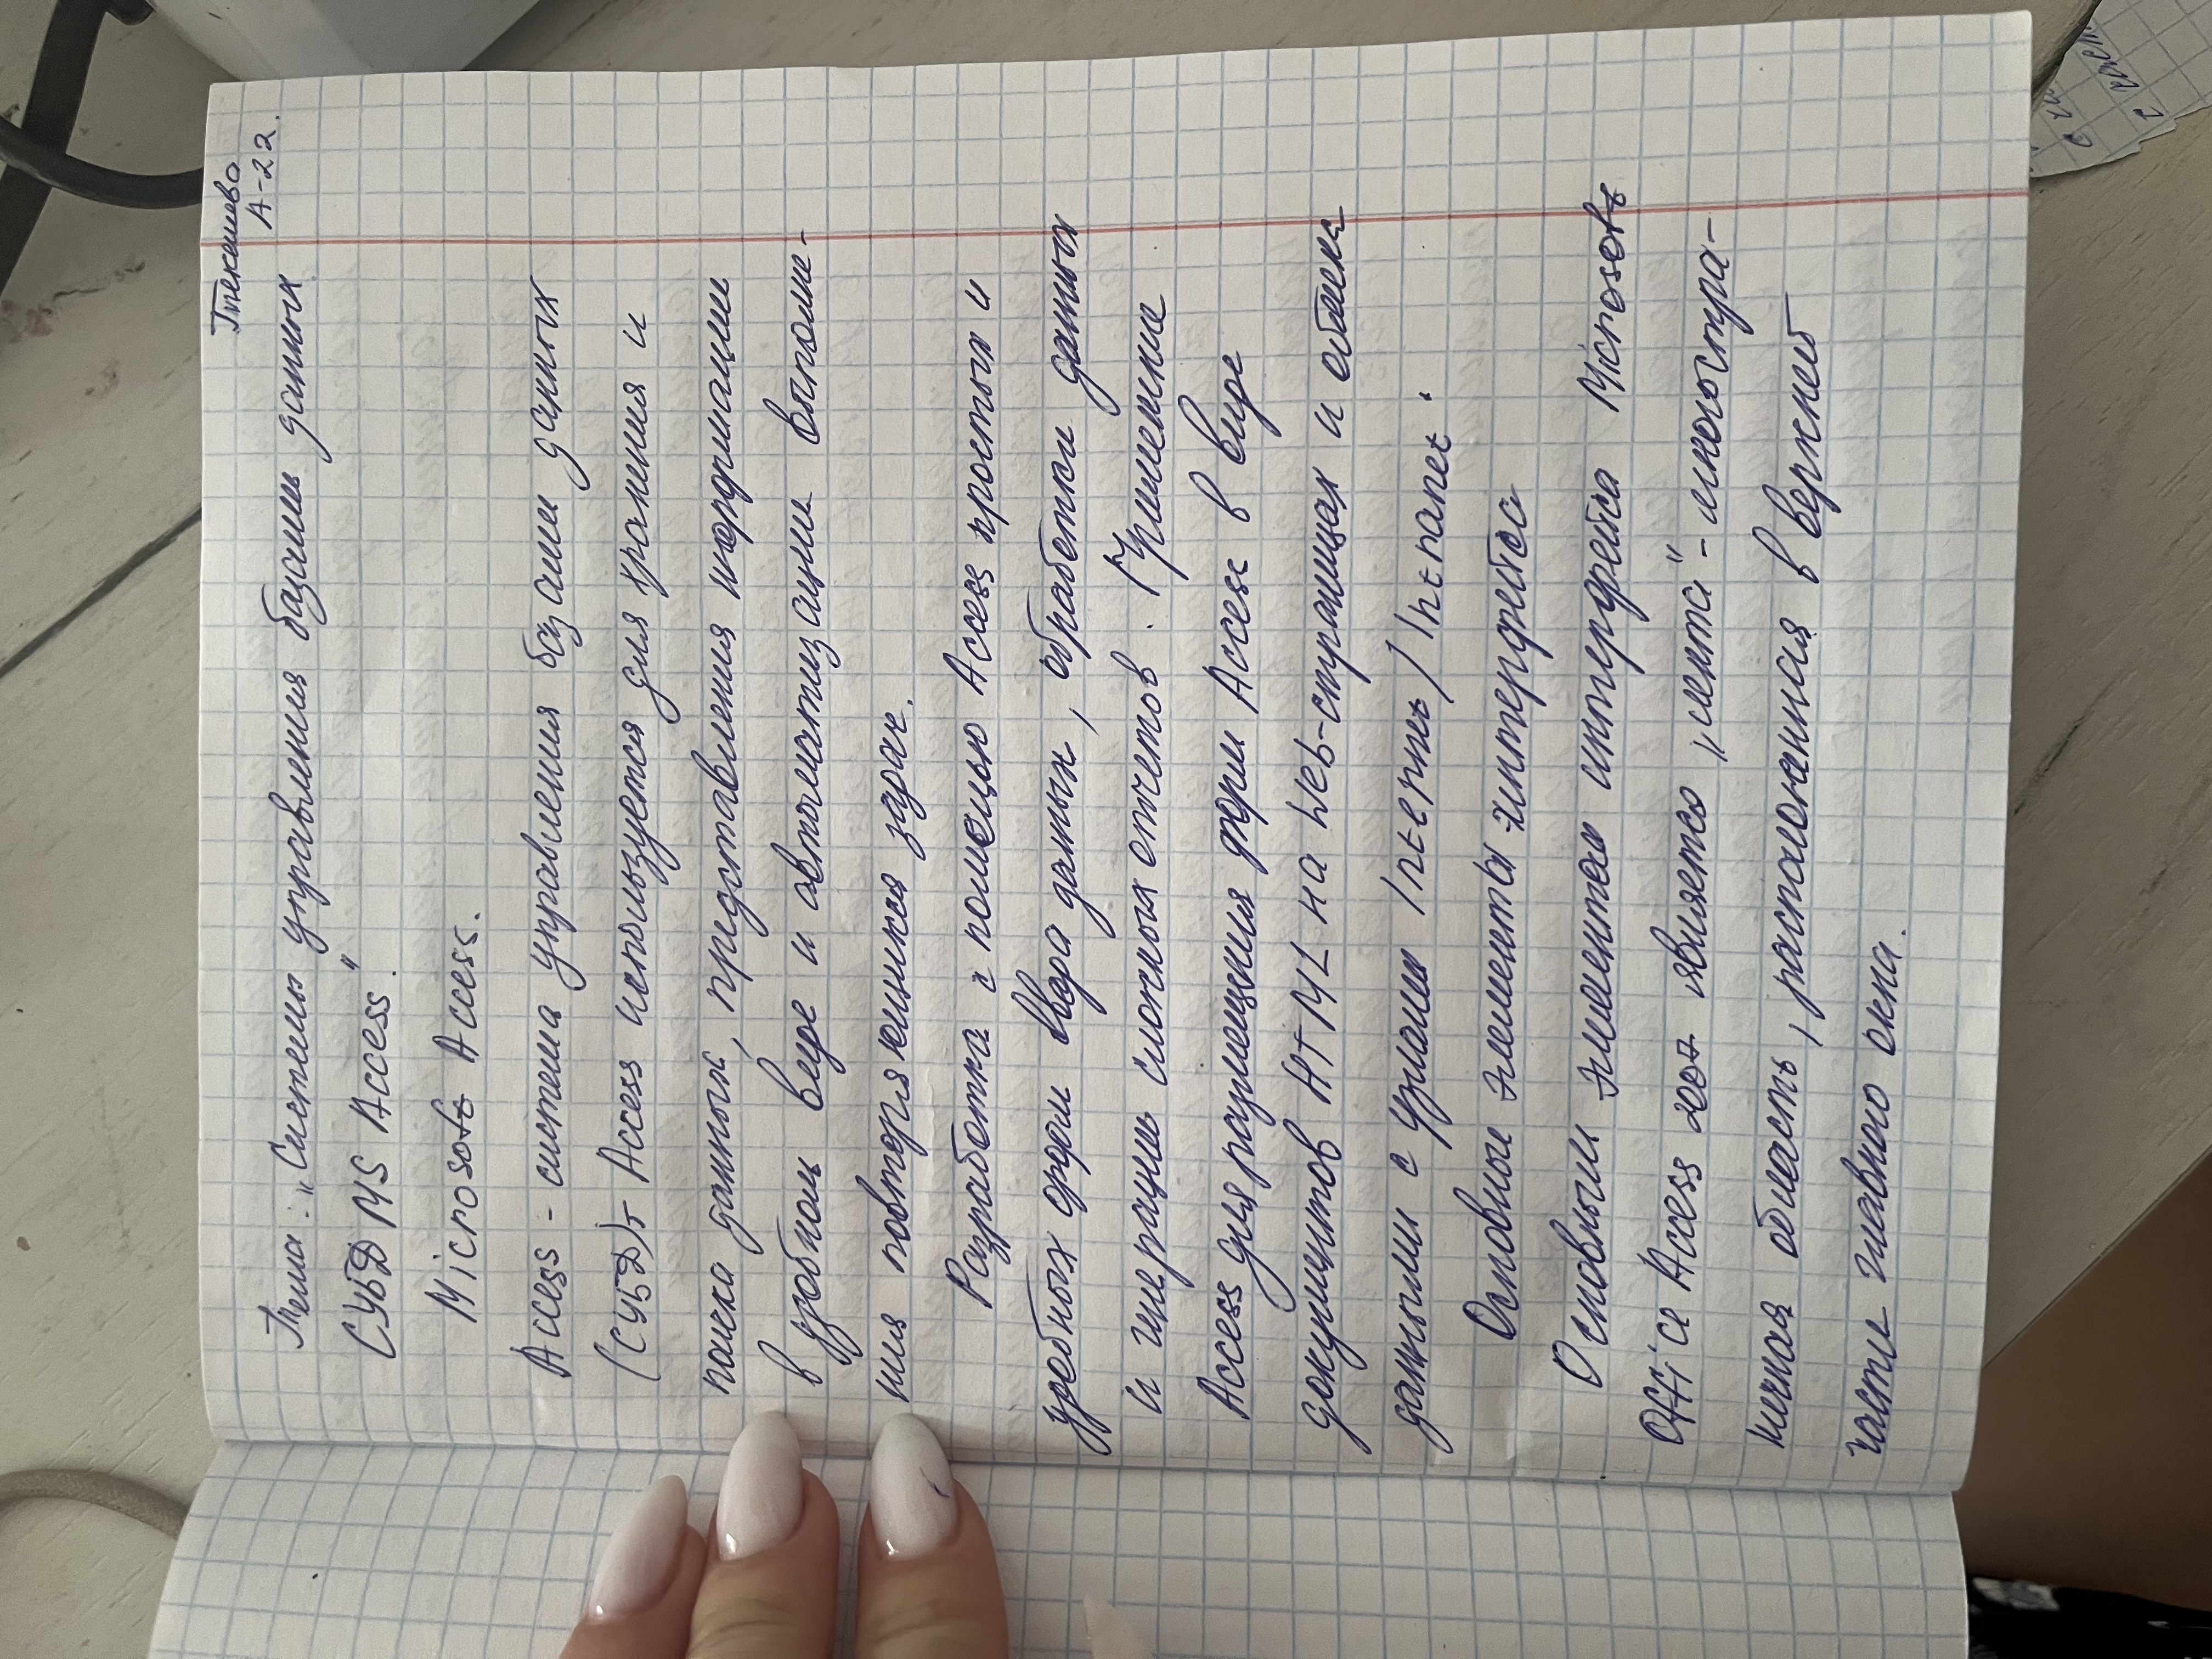 Текешова
А-22.
Тема: „Системы управления базами данных
СУБД MS Access."
Microsoft Access.
Access - система управления базами данных
(СУБД). Access используется для хранения и
поиска данных, представления информации
в удобном виде и автоматизации выполне-
ния повторяющихся задач.
Разработка с помощью Access простых и
удобных форм ввода данных, обработки данных
и генерации сложных отчетов. Применение
Access для размещения форм Access в виде
документов HTML на Web-страницах и обмена
данными с узлами Internet / Intranet.
Основные элементы интерфейса
Основным элементом интерфейса Microsoft
Office Access 2007 является „лента" - многостра-
ничная область, расположенная в верхней
части главного окна.